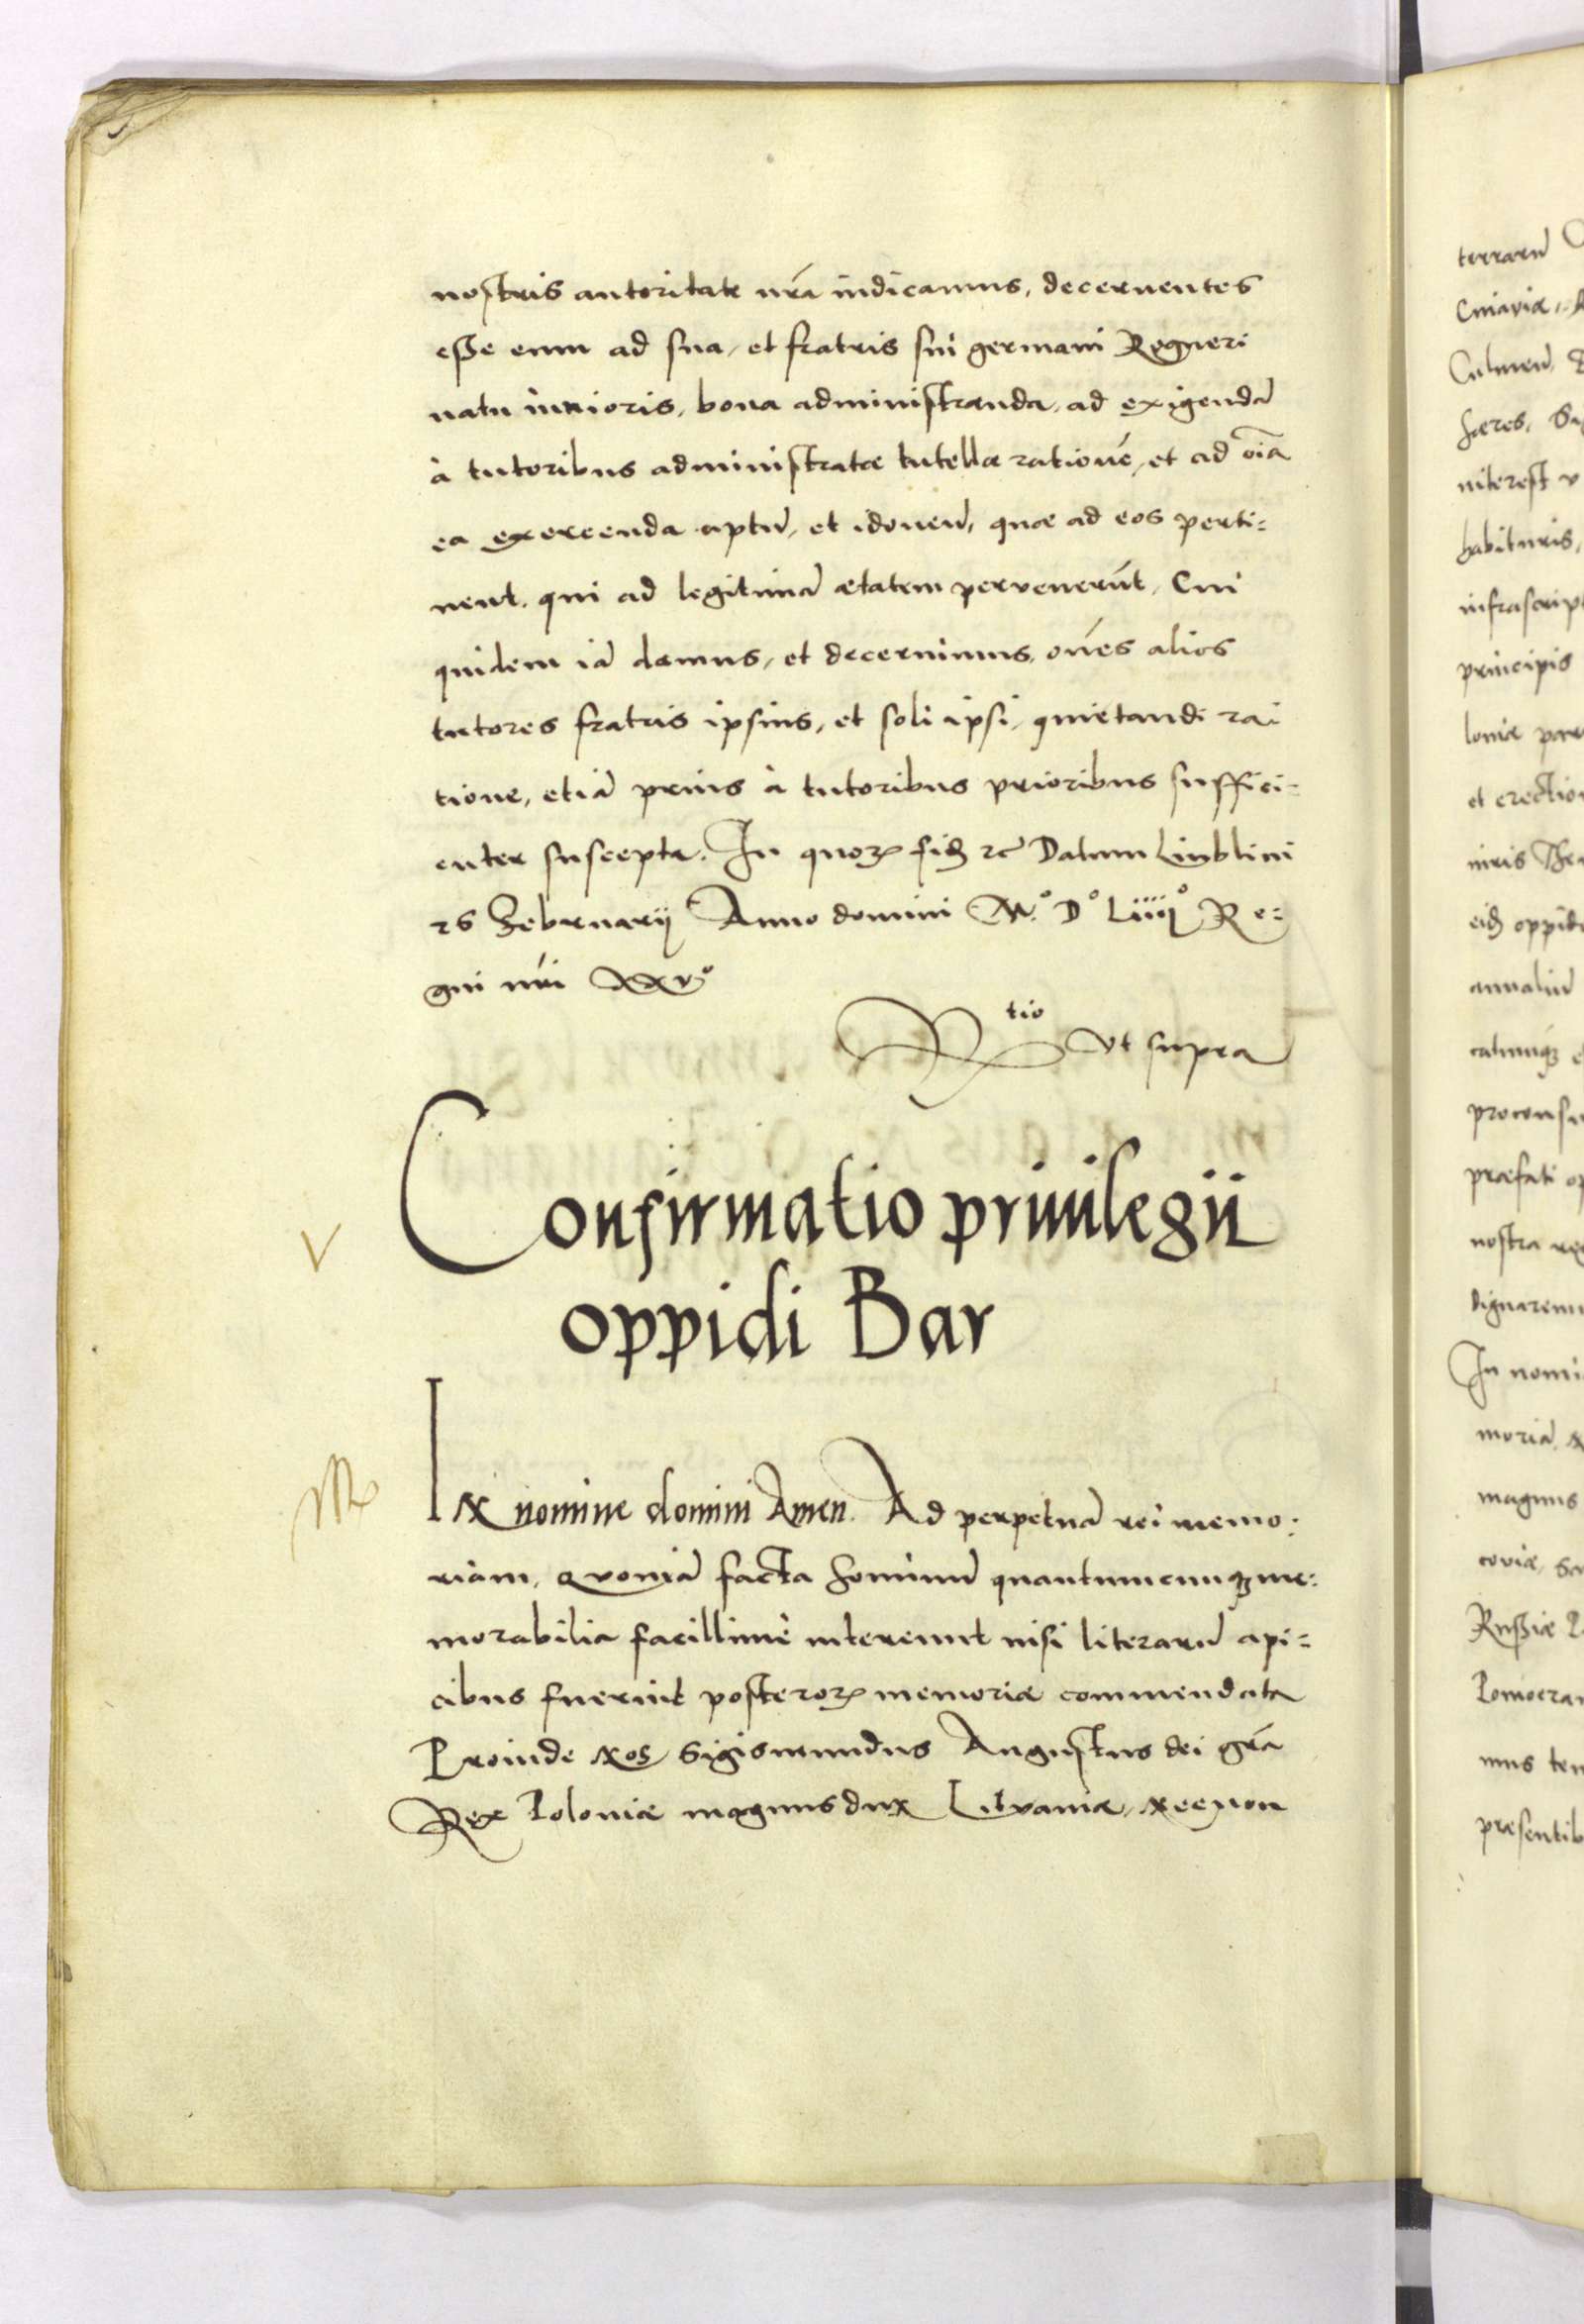 nostris autoritate nrã iudicamus, decernentes
esse eum ad sua, et fratris sui germani Regneri
natu iunioris, bona administranda, ad exigendã
à tutoribus administratæ tutellæ rationẽ, et ad oĩa
ea exercenda aptũ, et idoneũ, quæ ad eos perti=
nent, qui ad legitimã ætatem pervenerũt, Cui
quidem iã damus, et decernimus, oẽs alios
tutores fratris ipsius, et soli ipsi, quietandi ra
tione, etiã prius à tutoribus prioribus suffici=
enter suscepta. In quoꝝ fidꝫ ꝛc Datum Lublini
26 Februarij Anno domini M.° D° Liiij° Re=
gni nr̃i xxv°
Rtio vt supra
Confirmatio priuilegii
oppidi Bar
V
In nomine domini Amen. Ad perpetuã rei memo:
riam, Quoniã facta hominũ quantumcunqꝫ me:
morabilia facillimè intereunt nisi literarũ api=
cibus fuerint posteroꝝ memoriæ commendata
Proinde Nos Sigismundus Augustus dei grã
Rex Poloniæ magnus dux Lituaniæ, Necnon
terrarũ
Cuiaviæ,
Culmeñ,
hæres,
interest
habituris,
infrascript
principis
loniæ
et erectio
eidꝫ oppid
annaliũ
proconsu
præfati
nostra
dignaremu
In nomi
moriã,
magnus
coviæ,
Russiæ
Pomera
mus
præsentib